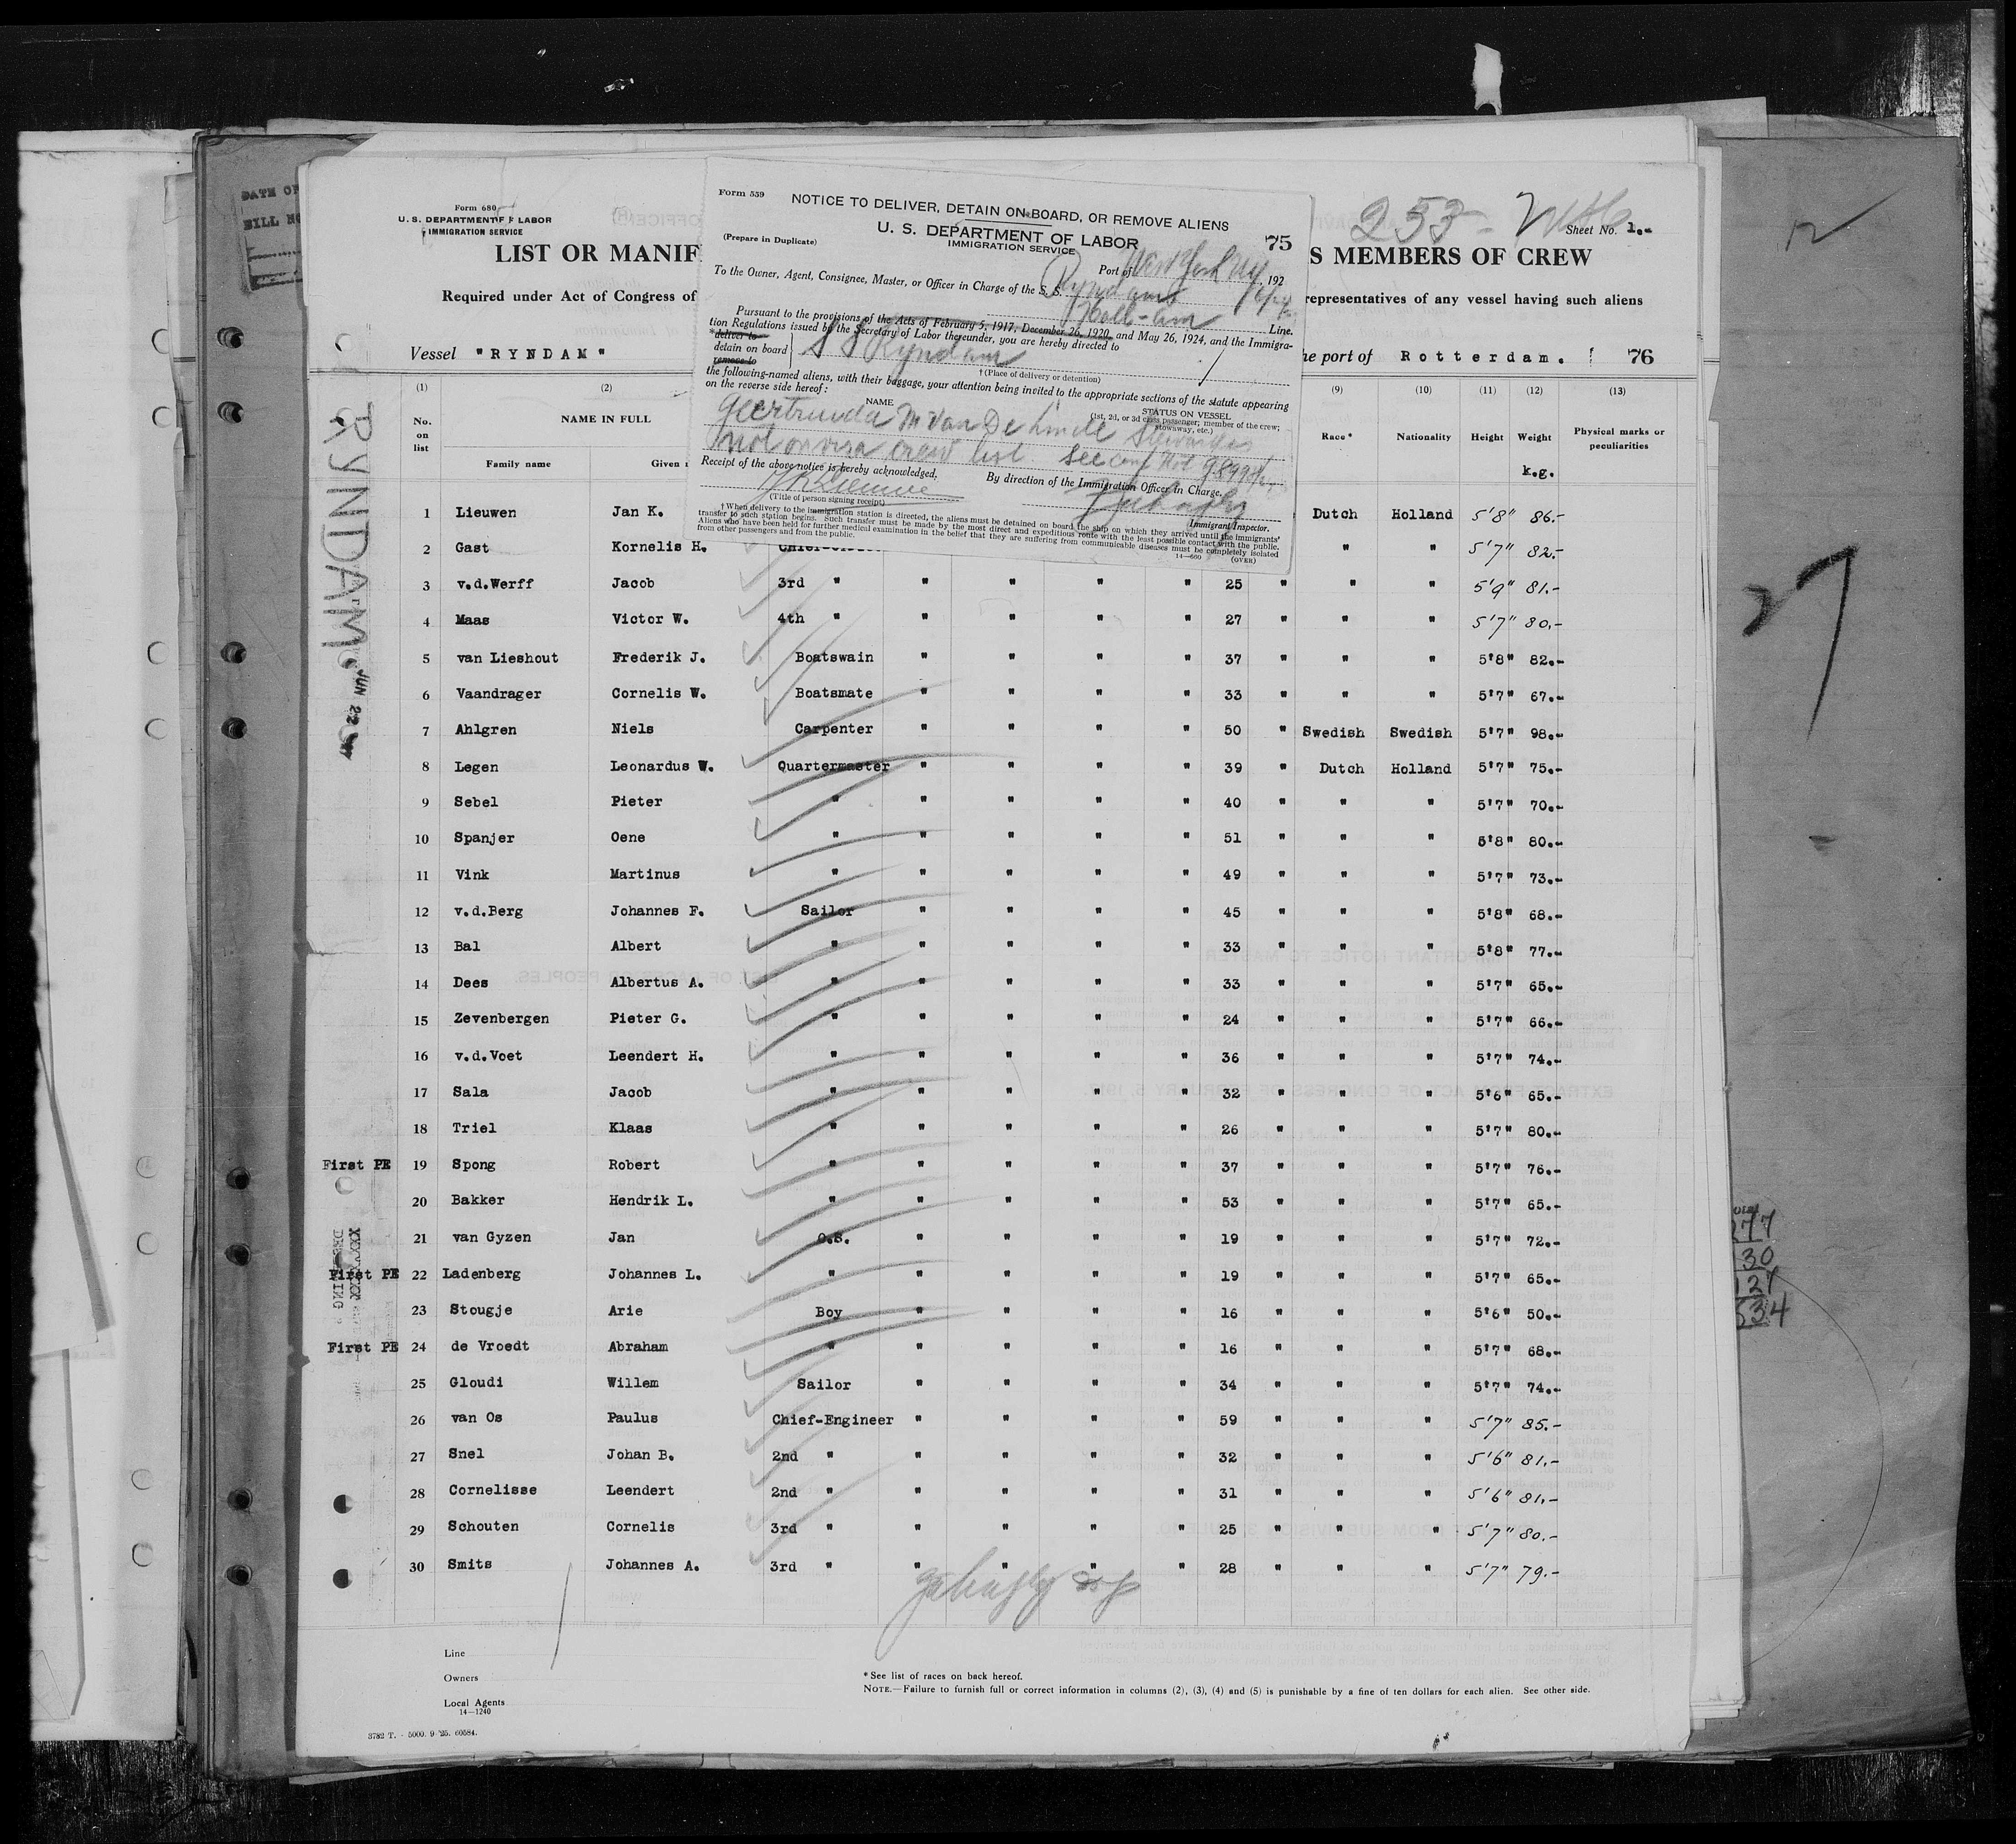 DATE OF
BILL NO
Form 680
U. S. DEPARTMENT OF LABOR
IMMIGRATION SERVICE
LIST OR MANIF
Required under Act of Congress of
Vessel "RYNDAM"
Form 559
NOTICE TO DELIVER, DETAIN ON BOARD, OR REMOVE ALIENS
U. S. DEPARTMENT OF LABOR
IMMIGRATION SERVICE
75
(Prepare in Duplicate)
Port of New York NY, 192
To the Owner, Agent, Consignee, Master, or Officer in Charge of the S. S. Ryndam
Holl-Am Line.
Pursuant to the provisions of the Acts of February 5, 1917, December 26, 1920, and May 26, 1924, and the Immigra-
tion Regulations issued by the Secretary of Labor thereunder, you are hereby directed to
*deliver to
detain on board
remove to
S S Ryndam
†(Place of delivery or detention)
the following-named aliens, with their baggage, your attention being invited to the appropriate sections of the statute appearing
on the reverse side hereof:
NAME
STATUS ON VESSEL
(1st, 2d, or 3d class passenger; member of the crew;
stowaway, etc.)
Geertruida M Van De Linde Stewardess
not on visa crew list. See
Receipt of the above notice is hereby acknowledged.
By direction of the Immigration Officer in Charge.
(Title of person signing receipt)
Immigrant Inspector.
†When delivery to the immigration station is directed, the aliens must be detained on board the ship on which they arrived until the immigrants'
transfer to such station begins. Such transfer must be made by the most direct and expeditious route with the least possible contact with the public.
Aliens who have been held for further medical examination in the belief that they are suffering from communicable diseases must be completely isolated
from other passengers and from the public.
14—660
(OVER)
253
Sheet No. 1.-
S MEMBERS OF CREW
representatives of any vessel having such aliens
he port of Rotterdam. 76
(1) (2) (9) (10) (11) (12) (13)
No. on list NAME IN FULL Race* Nationality Height Weight Physical marks or peculiarities
Family name Given k.g.
1 Lieuwen Jan K. Dutch Holland 5'8" 86.-
2 Gast Kornelis H. " " 5'7" 82.-
3 v.d.Werff Jacob 3rd " " " " " 25 " " " 5'9" 81.-
4 Maas Victor W. 4th " " " " " 27 " " " 5'7" 80.-
5 van Lieshout Frederik J. Boatswain " " " " 37 " " " 5'8" 82.-
6 Vaandrager Cornelis W. Boatsmate " " " " 33 " " " 5'7" 67.-
7 Ahlgren Niels Carpenter " " " " 50 " Swedish Swedish 5'7" 98.-
8 Legen Leonardus W. Quartermaster " " " " 39 " Dutch Holland 5'7" 75.-
9 Sebel Pieter " " " " " 40 " " " 5'7" 70.-
10 Spanjer Oene " " " " " 51 " " " 5'8" 80.-
11 Vink Martinus " " " " " 49 " " " 5'7" 73.-
12 v.d.Berg Johannes F. Sailor " " " " 45 " " " 5'8" 68.-
13 Bal Albert " " " " " 33 " " " 5'8" 77.-
14 Dees Albertus A. " " " " " 33 " " " 5'7" 65.-
15 Zevenbergen Pieter G. " " " " " 24 " " " 5'7" 66.-
16 v.d.Voet Leendert H. " " " " " 36 " " " 5'7" 74.-
17 Sala Jacob " " " " " 32 " " " 5'6" 65.-
18 Triel Klaas " " " " " 26 " " " 5'7" 80.-
First PE 19 Spong Robert " " " " " 37 " " " 5'7" 76.-
20 Bakker Hendrik L. " " " " " 53 " " " 5'7" 65.-
21 van Gyzen Jan O.S. " " " " 19 " " " 5'7" 72.-
First PE 22 Ladenberg Johannes L. " " " " " 19 " " " 5'7" 65.-
23 Stougje Arie Boy " " " " 16 " " " 5'6" 50.-
First PE 24 de Vroedt Abraham " " " " " 16 " " " 5'7" 68.-
25 Gloudi Willem Sailor " " " " 34 " " " 5'7" 74.-
26 van Os Paulus Chief-Engineer " " " " 59 " " " 5'7" 85.-
27 Snel Johan B. 2nd " " " " " 32 " " " 5'6" 81.-
28 Cornelisse Leendert 2nd " " " " " 31 " " " 5'6" 81.-
29 Schouten Cornelis 3rd " " " " " 25 " " " 5'7" 80.-
30 Smits Johannes A. 3rd " " " " " 28 " " " 5'7" 79.-
RYNDAM
JUN 22
Line
Owners
Local Agents
14—1240
* See list of races on back hereof.
NOTE.—Failure to furnish full or correct information in columns (2), (3), (4) and (5) is punishable by a fine of ten dollars for each alien. See other side.
3782 T. - 5000. 9-'25. 60584.
27
277
130
127
534